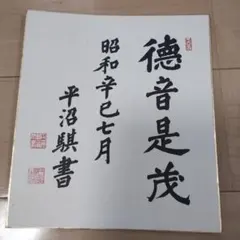 德音是茂
昭和辛巳七月
平沼騏書